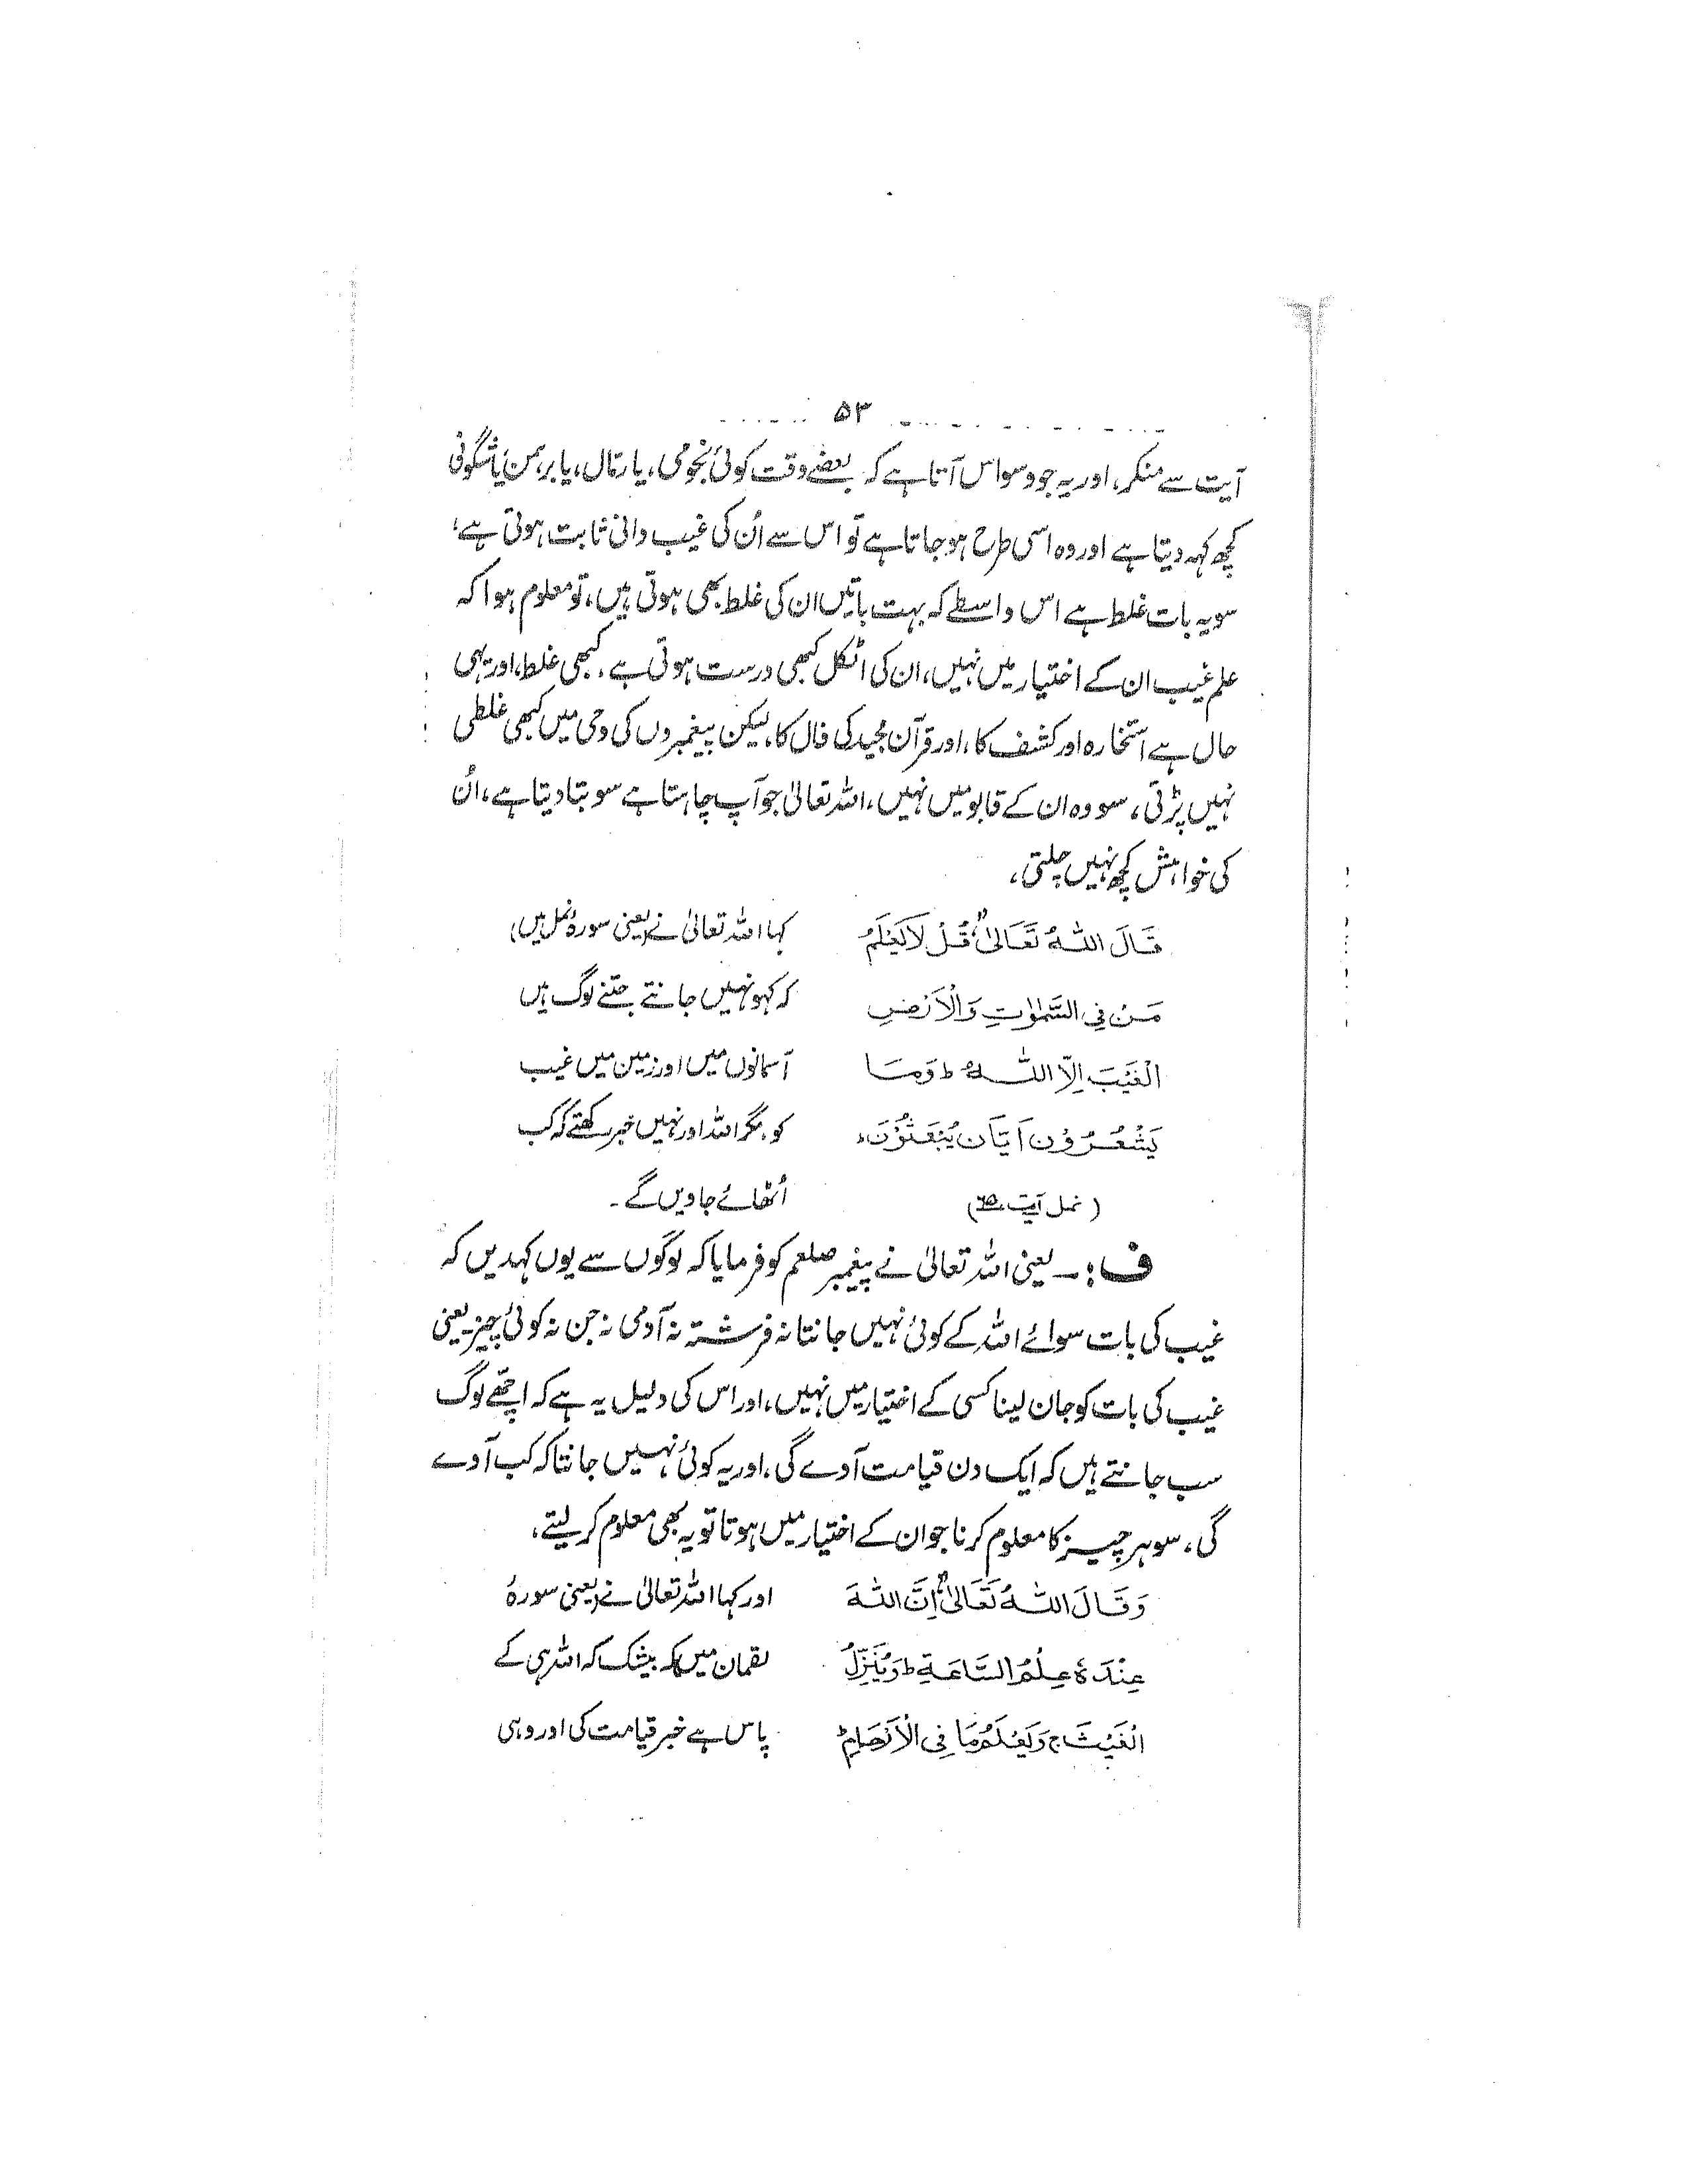 ۵۳
آیت سے منکر، اور یہ جو وسواس آتا ہے کہ بعضے وقت کوئی نجومی، یا رمّال، یا برہمن یا شگونی
کچھ کہہ دیتا ہے اور وہ اسی طرح ہو جاتا ہے تو اس سے اُن کی غیب دانی ثابت ہوتی ہے،
سو یہ بات غلط ہے اس واسطے کہ بہت باتیں ان کی غلط بھی ہوتی ہیں، تو معلوم ہوا کہ
علم غیب ان کے اختیار میں نہیں، ان کی اٹکل کبھی درست ہوتی ہے، کبھی غلط، اور یہی
حال ہے استخارہ اور کشف کا، اور قرآن مجید کی فال کا، لیکن پیغمبروں کی وحی میں کبھی غلطی
نہیں پڑتی، سو وہ ان کے قابو میں نہیں، اللہ تعالیٰ جو آپ چاہتا ہے سو بتا دیتا ہے، اُن
کی خواہش کچھ نہیں چلتی،
قَالَ اللهُ تَعَالىٰ، قُلْ لَا يَعْلَمُ کہا اللہ تعالیٰ نے (یعنی سورۂ نمل میں)
مَنْ فِي السَّمٰوٰتِ وَالْاَرْضِ کہ کہو نہیں جانتے جتنے لوگ ہیں
الْغَيْبَ اِلَّا اللهُ ط وَمَا آسمانوں میں اور زمین میں غیب
يَشْعُرُوْنَ اَيَّانَ يُبْعَثُوْنَ، کو، مگر اللہ اور نہیں خبر رکھتے کہ کب
(نمل آیت ۶۵) اُٹھائے جاویں گے۔
ف:۔ یعنی اللہ تعالیٰ نے پیغمبر صلعم کو فرمایا کہ لوگوں سے یوں کہدیں کہ
غیب کی بات سوائے اللہ کے کوئی نہیں جانتا نہ فرشتہ نہ آدمی نہ جن نہ کوئی چیز، یعنی
غیب کی بات کو جان لینا کسی کے اختیار میں نہیں، اور اس کی دلیل یہ ہے کہ اچھے لوگ
سب جانتے ہیں کہ ایک دن قیامت آوے گی، اور یہ کوئی نہیں جانتا کہ کب آوے
گی، سو ہر چیز کا معلوم کرنا جو ان کے اختیار میں ہوتا تو یہ بھی معلوم کر لیتے،
وَقَالَ اللهُ تَعَالىٰ، اِنَّ اللهَ اور کہا اللہ تعالیٰ نے (یعنی سورۂ
عِنْدَهٗ عِلْمُ السَّاعَةِ ط وَيُنَزِّلُ لقمان میں) کہ بیشک کہ اللہ ہی کے
الْغَيْثَ ج وَيَعْلَمُ مَا فِي الْاَرْحَامِ ط پاس ہے خبر قیامت کی اور وہی